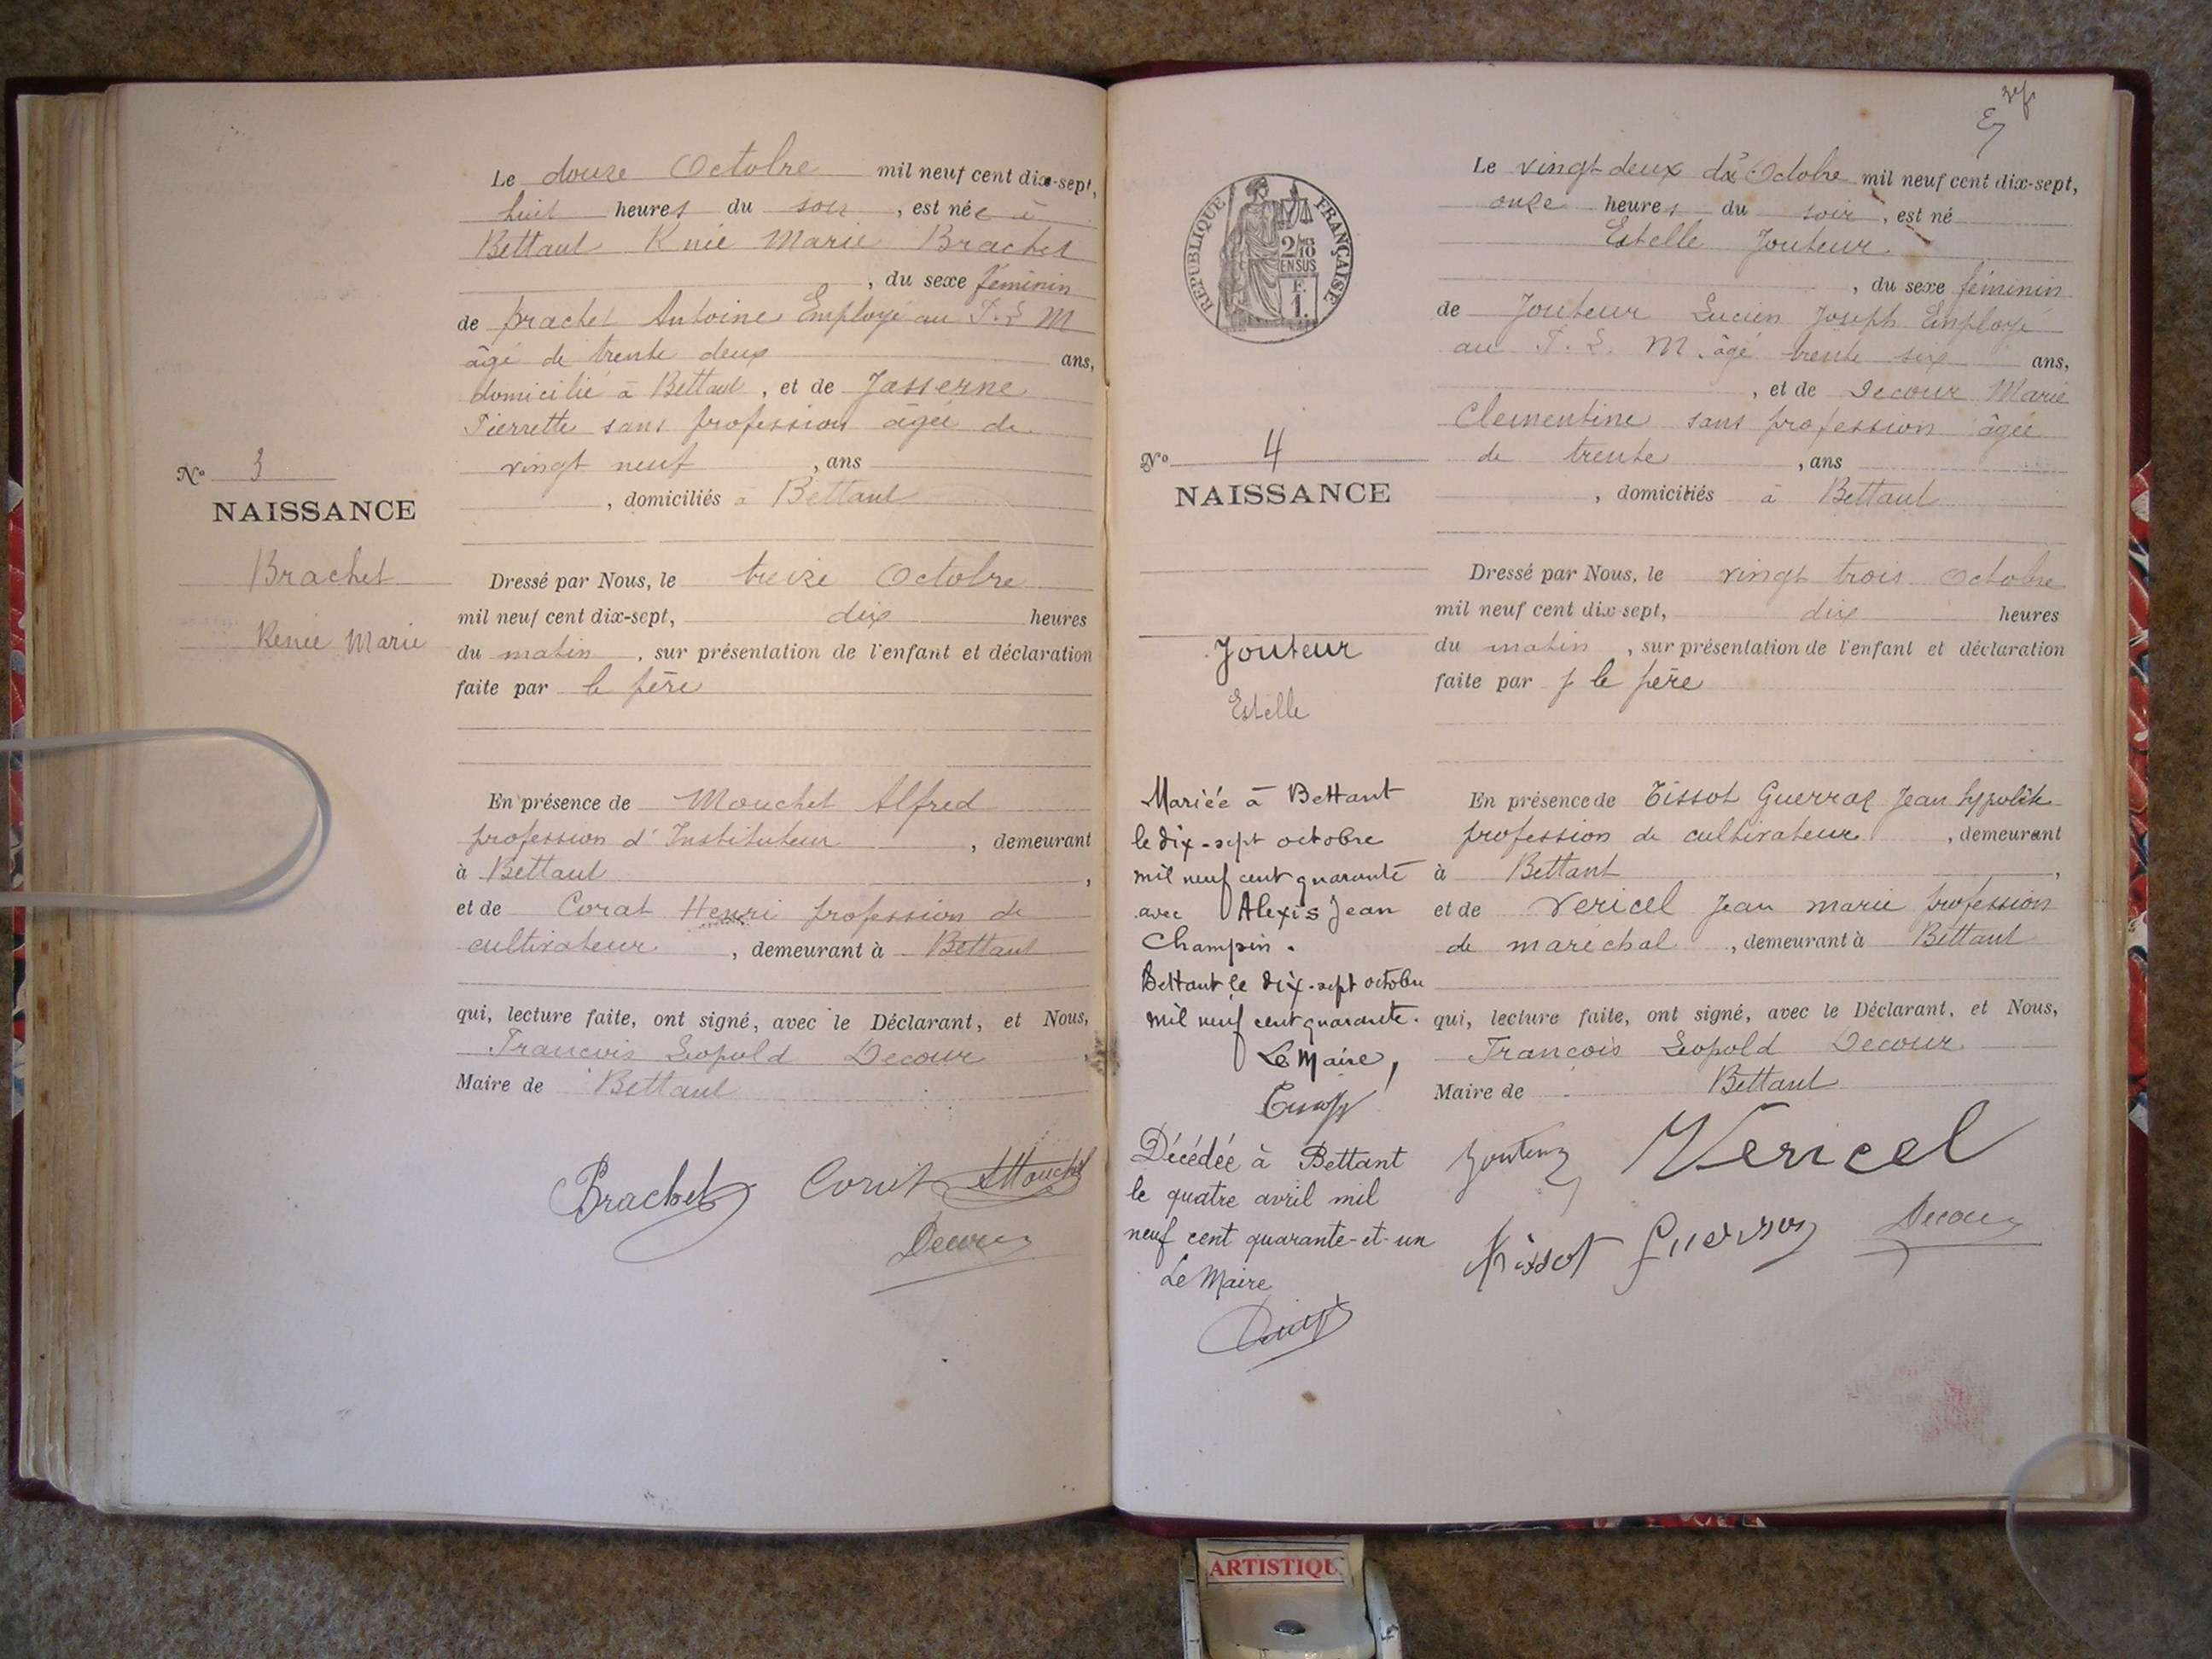 Le douze Octobre mil neuf cent dix-sept,
huit heures du soir, est née à
Bettant Rnée Marie Brachet
, du sexe féminin
de Brachet Antoine Employé au P. L M
âgé de trente deux ans,
domicilié à Bettant, et de Jasserne
Pierrette sans profession âgée de
vingt neuf, ans
, domiciliés à Bettant
No 3
NAISSANCE
Brachet
Renée Marie
Dressé par Nous, le treize Octobre
mil neuf cent dix-sept, dix heures
du matin, sur présentation de l'enfant et déclaration
faite par le père
En présence de Mouchet Alfred
profession d'Instituteur, demeurant
à Bettant,
et de Corat Henri profession de
cultivateur, demeurant à Bettant
qui, lecture faite, ont signé, avec le Déclarant, et Nous,
Francois Leopold Decour
Maire de Bettant
Brachet Mouchet
Decour
REPUBLIQUE FRANÇAISE
2/10
EN SUS
F.
1.
Le vingt-deux Octobre mil neuf cent dix-sept,
onze heures du soir, est né
Estelle Jouteur
, du sexe féminin
de Jouteur Lucien Joseph Employé
au P. L. M. âgé trente six ans,
, et de Decour Marie
Clementine sans profession âgée
de trente, ans
, domiciliés à Bettant
No 4
NAISSANCE
Jouteur
Estelle
Dressé par Nous, le vingt trois Octobre
mil neuf cent dix-sept, dix heures
du matin, sur présentation de l'enfant et déclaration
faite par le père
En présence de Tissot Guerraz Jean hypolite
profession de cultivateur, demeurant
à Bettant,
et de Vericel Jean marie profession
de maréchal, demeurant à Bettant
qui, lecture faite, ont signé, avec le Déclarant, et Nous,
François Leopold Decour
Maire de Bettant
Jouteur Vericel
Tissot Guerraz Decour
Mariée à Bettant
le dix-sept octobre
mil neuf cent quarante
avec Alexis Jean
Champin.
Bettant le dix-sept octobre
mil neuf cent quarante.
Le Maire,
Décédée à Bettant
le quatre avril mil
neuf cent quarante-et-un
Le Maire
ARTISTIQU